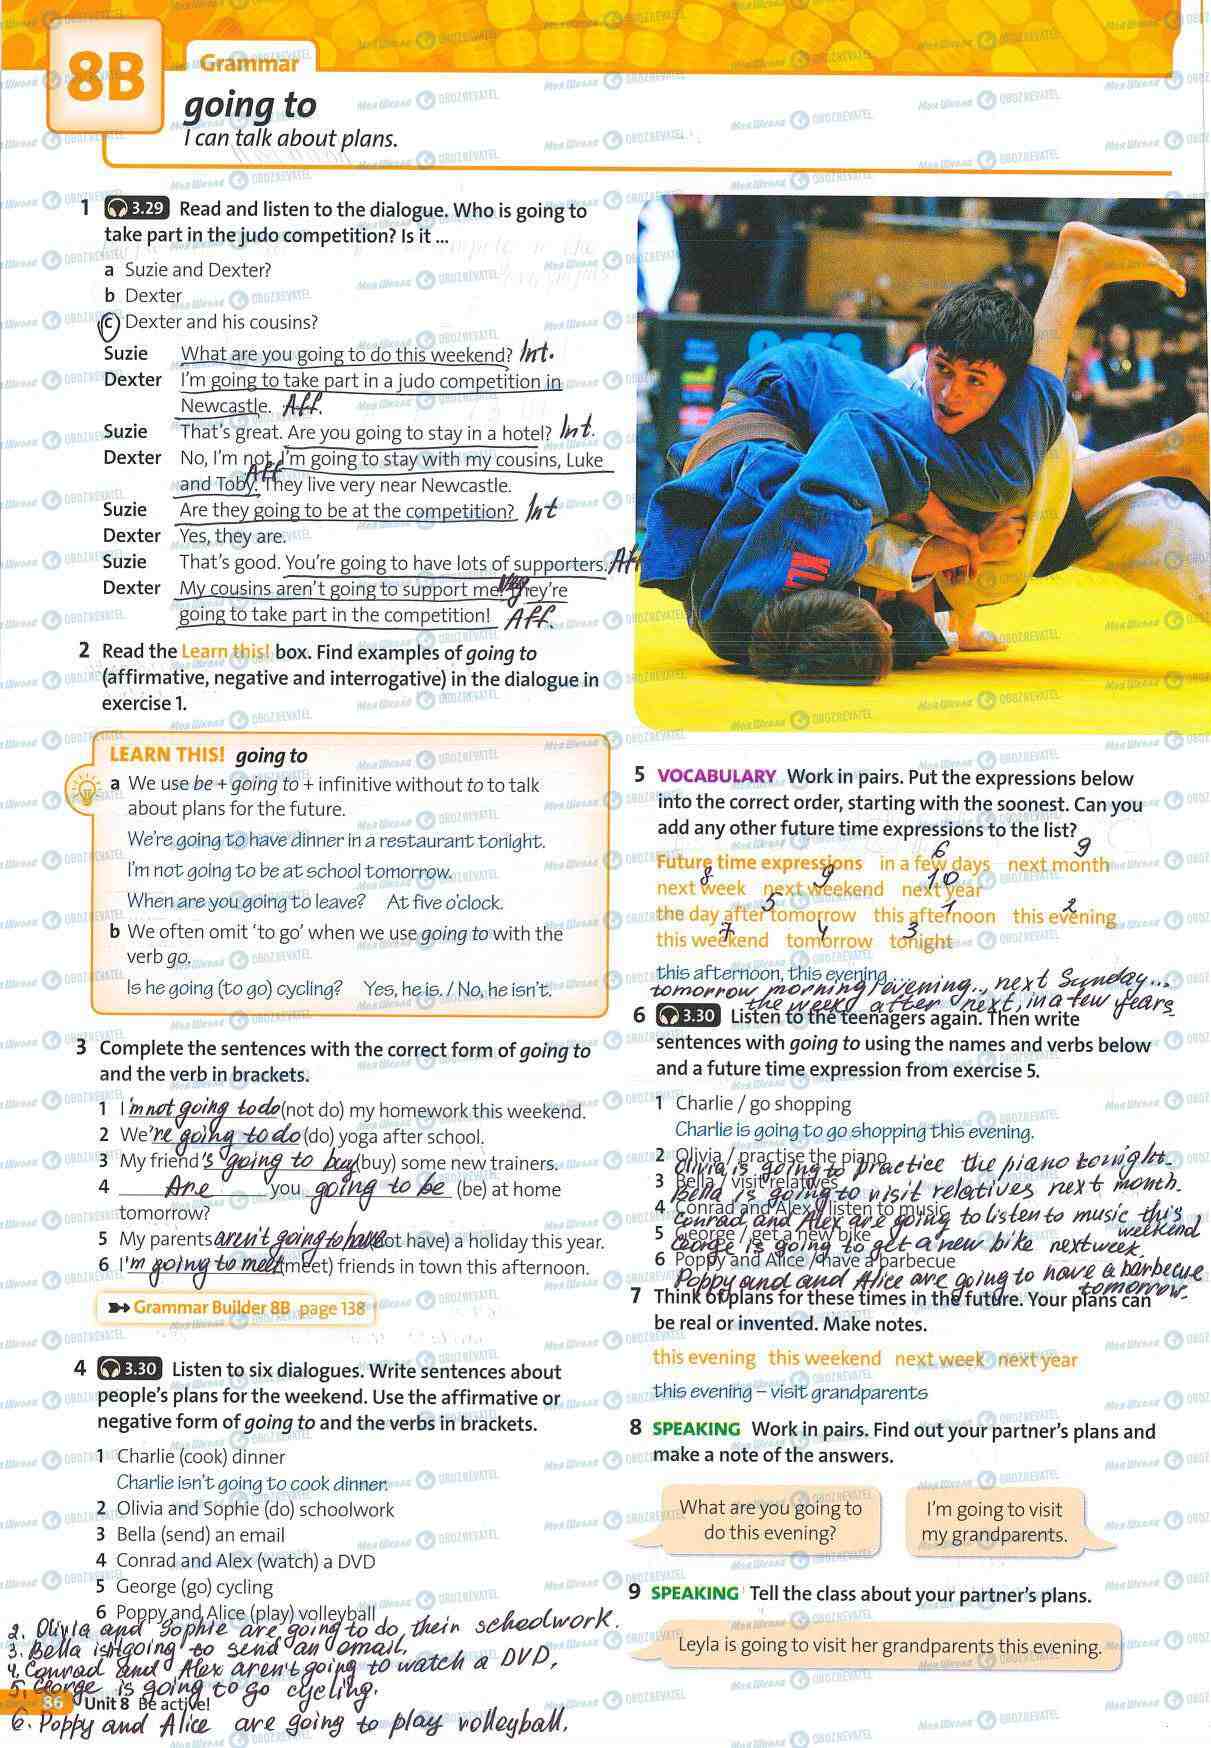 8B
Grammar
going to
I can talk about plans.
1 3.29 Read and listen to the dialogue. Who is going to
take part in the judo competition? Is it ...
a Suzie and Dexter?
b Dexter
c Dexter and his cousins?
Suzie What are you going to do this weekend? Int.
Dexter I'm going to take part in a judo competition in
Newcastle. Aff.
Suzie That's great. Are you going to stay in a hotel? Int.
Dexter No, I'm not. I'm going to stay with my cousins, Luke
and Toby. Aff They live very near Newcastle.
Suzie Are they going to be at the competition? Int
Dexter Yes, they are.
Suzie That's good. You're going to have lots of supporters. Aff
Dexter My cousins aren't going to support me! Neg They're
going to take part in the competition! Aff.
2 Read the Learn this! box. Find examples of going to
(affirmative, negative and interrogative) in the dialogue in
exercise 1.
LEARN THIS! going to
a We use be + going to + infinitive without to to talk
about plans for the future.
We're going to have dinner in a restaurant tonight.
I'm not going to be at school tomorrow.
When are you going to leave? At five o'clock.
b We often omit 'to go' when we use going to with the
verb go.
Is he going (to go) cycling? Yes, he is. / No, he isn't.
3 Complete the sentences with the correct form of going to
and the verb in brackets.
1 I'm not going to do (not do) my homework this weekend.
2 We're going to do (do) yoga after school.
3 My friend's going to buy (buy) some new trainers.
4 Are you going to be (be) at home
tomorrow?
5 My parents aren't going to have (not have) a holiday this year.
6 I'm going to meet (meet) friends in town this afternoon.
Grammar Builder 8B page 138
4 3.30 Listen to six dialogues. Write sentences about
people's plans for the weekend. Use the affirmative or
negative form of going to and the verbs in brackets.
1 Charlie (cook) dinner
Charlie isn't going to cook dinner.
2 Olivia and Sophie (do) schoolwork
3 Bella (send) an email
4 Conrad and Alex (watch) a DVD
5 George (go) cycling
6 Poppy and Alice (play) volleyball
2. Olivia and Sophie are going to do their schoolwork.
3. Bella isn't going to send an email.
4. Conrad and Alex aren't going to watch a DVD.
5. George is going to go cycling.
86 Unit 8 Be active!
6. Poppy and Alice are going to play volleyball.
5 VOCABULARY Work in pairs. Put the expressions below
into the correct order, starting with the soonest. Can you
add any other future time expressions to the list?
6 9
Future time expressions in a few days next month
8 9 10
next week next weekend next year
5 1 2
the day after tomorrow this afternoon this evening
7 4 3
this weekend tomorrow tonight
this afternoon, this evening ...
tomorrow morning / evening.., next Sunday...
the week after next, in a few years
6 3.30 Listen to the teenagers again. Then write
sentences with going to using the names and verbs below
and a future time expression from exercise 5.
1 Charlie / go shopping
Charlie is going to go shopping this evening.
2 Olivia / practise the piano
Olivia is going to practice the piano tonight.
3 Bella / visit relatives
Bella is going to visit relatives next month.
4 Conrad and Alex / listen to music
Conrad and Alex are going to listen to music this
weekend
5 George / get a new bike
George is going to get a new bike next week.
6 Poppy and Alice / have a barbecue
Poppy and and Alice are going to have a barbecue
tomorrow.
7 Think of plans for these times in the future. Your plans can
be real or invented. Make notes.
this evening this weekend next week next year
this evening – visit grandparents
8 SPEAKING Work in pairs. Find out your partner's plans and
make a note of the answers.
What are you going to
do this evening?
I'm going to visit
my grandparents.
9 SPEAKING Tell the class about your partner's plans.
Leyla is going to visit her grandparents this evening.